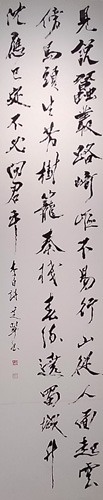 見說蠶叢路崎嶇不易行山從人面起雲
傍馬頭生芳樹籠秦棧春流遶蜀城升
沈應已定不必問君平
李白詩